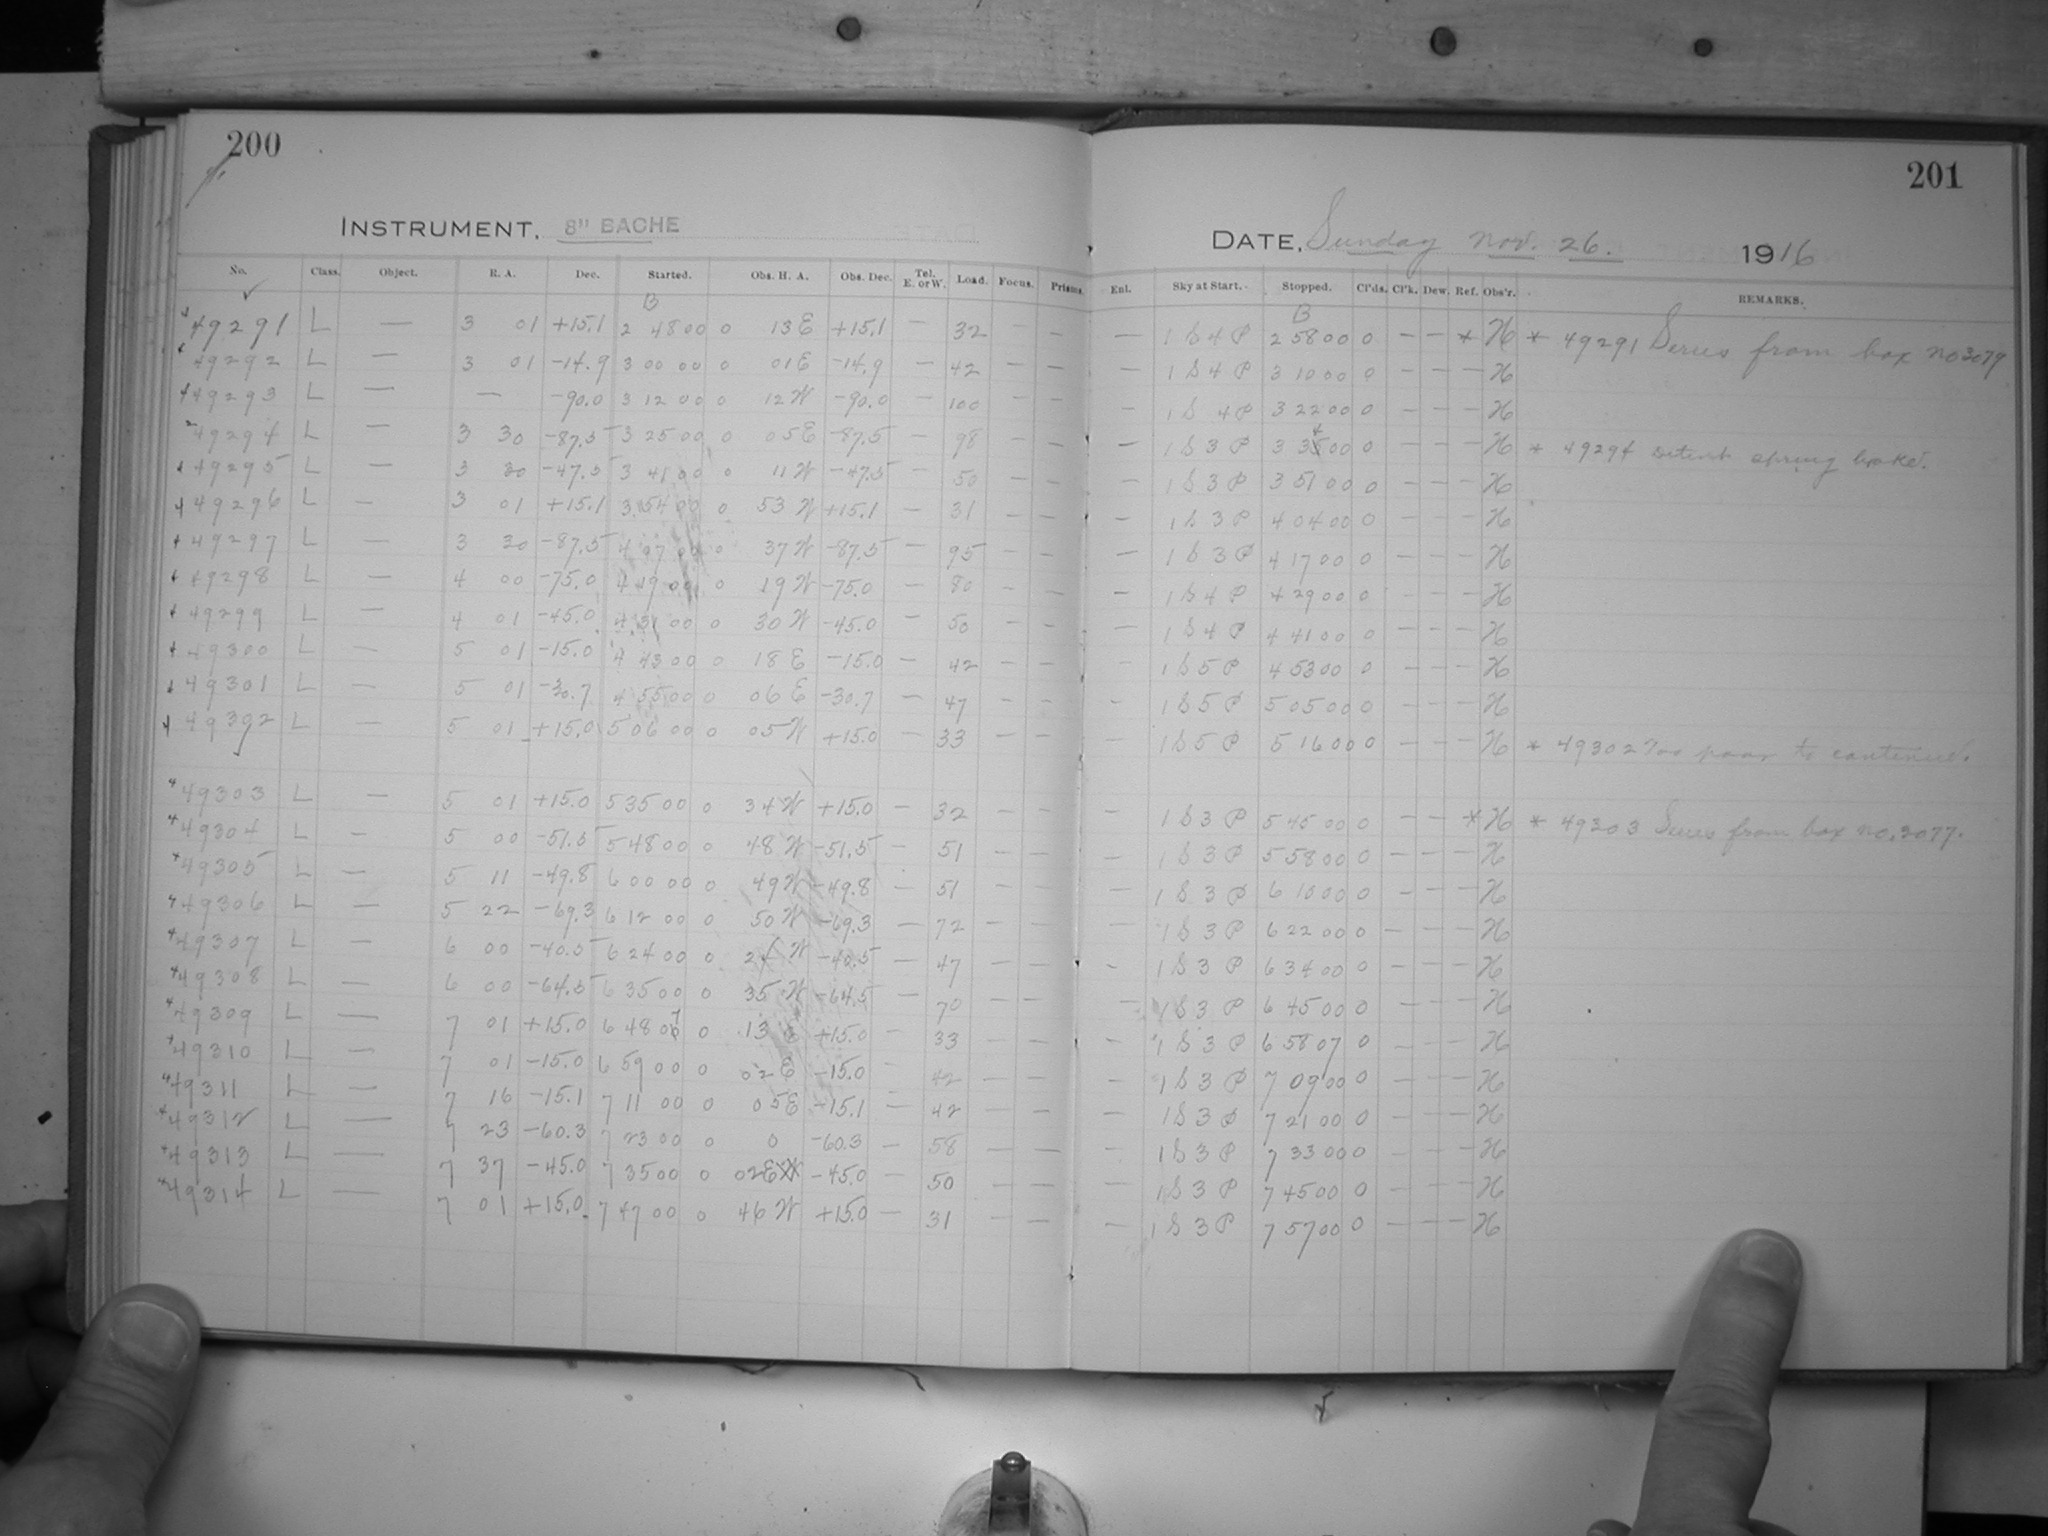 200
201
INSTRUMENT. 8" BACHE
DATE. Sunday Nov. 26. 1916
No. Class. Object. R. A. Dec. Started. Obs. H. A. Obs. Dec. Tel. E. or W. Load. Focus. Prisms. Enl. Sky at Start. Stopped. Cl'ds. Cl'k. Dew. Ref. Obs'r. REMARKS.
B B
49291 L — 3 01 +15.1 2 48 00 0 13 E +15.1 — 32 — — — 1 S 4 P 2 58 00 0 — — * H * 49291 Series from box no 3079
49292 L — 3 01 -14.9 3 00 00 0 01 E -14.9 — 42 — — — 1 S 4 P 3 10 00 0 — — — H
49293 L — — -90.0 3 12 00 0 12 W -90.0 — 100 — — — 1 S 4 P 3 22 00 0 — — — H
49294 L — 3 30 -87.5 3 25 00 0 05 E -87.5 — 98 — — — 1 S 3 P 3 35 00 0 — — — H * 49294 Detent spring broke.
49295 L — 3 30 -47.5 3 41 00 0 11 W -47.5 — 50 — — — 1 S 3 P 3 51 00 0 — — — H
49296 L — 3 01 +15.1 3 54 00 0 53 W +15.1 — 31 — — — 1 S 3 P 4 04 00 0 — — — H
49297 L — 3 30 -87.5 4 07 00 0 37 W -87.5 — 95 — — — 1 S 3 P 4 17 00 0 — — — H
49298 L — 4 00 -75.0 4 19 00 0 19 W -75.0 — 80 — — — 1 S 4 P 4 29 00 0 — — — H
49299 L — 4 01 -45.0 4 31 00 0 30 W -45.0 — 50 — — — 1 S 4 P 4 41 00 0 — — — H
49300 L — 5 01 -15.0 4 43 00 0 18 E -15.0 — 42 — — — 1 S 5 P 4 53 00 0 — — — H
49301 L — 5 01 -30.7 4 55 00 0 06 E -30.7 — 47 — — — 1 S 5 P 5 05 00 0 — — — H
49302 L — 5 01 +15.0 5 06 00 0 05 W +15.0 — 33 — — — 1 S 5 P 5 16 00 0 — — — H * 49302 Too poor to continue.
49303 L — 5 01 +15.0 5 35 00 0 34 W +15.0 — 32 — — — 1 S 3 P 5 45 00 0 — — * H * 49303 Series from box no. 3077.
49304 L — 5 00 -51.5 5 48 00 0 48 W -51.5 — 51 — — — 1 S 3 P 5 58 00 0 — — — H
49305 L — 5 11 -49.8 6 00 00 0 49 W -49.8 — 51 — — — 1 S 3 P 6 10 00 0 — — — H
49306 L — 5 22 -69.3 6 12 00 0 50 W -69.3 — 72 — — — 1 S 3 P 6 22 00 0 — — — H
49307 L — 6 00 -40.5 6 24 00 0 24 W -40.5 — 47 — — — 1 S 3 P 6 34 00 0 — — — H
49308 L — 6 00 -64.5 6 35 00 0 35 W -64.5 — 70 — — — 1 S 3 P 6 45 00 0 — — — H
49309 L — 7 01 +15.0 6 48 07 0 13 E +15.0 — 33 — — — 1 S 3 P 6 58 07 0 — — — H
49310 L — 7 01 -15.0 6 59 00 0 02 E -15.0 — 42 — — — 1 S 3 P 7 09 00 0 — — — H
49311 L — 7 16 -15.1 7 11 00 0 05 E -15.1 — 42 — — — 1 S 3 P 7 21 00 0 — — — H
49312 L — 7 23 -60.3 7 23 00 0 0 -60.3 — 58 — — — 1 S 3 P 7 33 00 0 — — — H
49313 L — 7 37 -45.0 7 35 00 0 02 E -45.0 — 50 — — — 1 S 3 P 7 45 00 0 — — — H
49314 L — 7 01 +15.0 7 47 00 0 46 W +15.0 — 31 — — — 1 S 3 P 7 57 00 0 — — — H